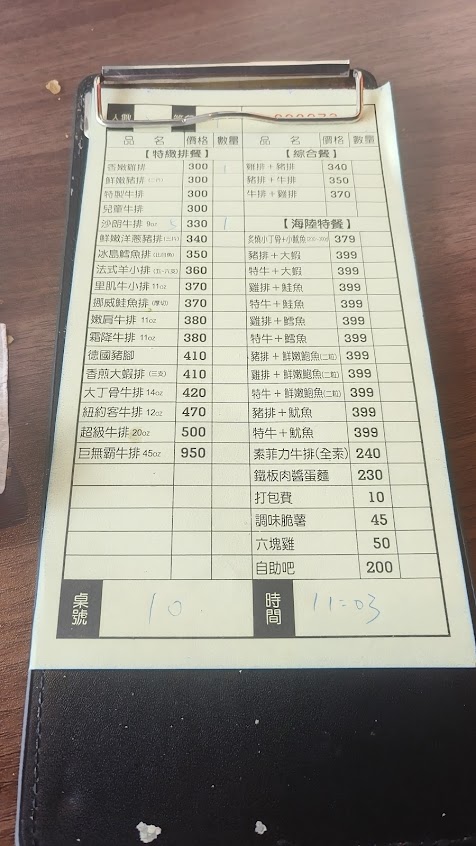 人數
000073
品 名 價格 數量 品 名 價格 數量
【特緻排餐】 【綜合餐】
香嫩雞排 300 1 雞排+豬排 340
鮮嫩豬排 300 豬排+牛排 350
特製牛排 300 牛排+雞排 370
兒童牛排 300
沙朗牛排 9oz 5 330 1 【海陸特餐】
鮮嫩洋蔥豬排 340 炙燒小丁骨+小魷魚 379
冰島鱈魚排 350 豬排+大蝦 399
法式羊小排 360 特牛+大蝦 399
里肌牛小排 11oz 370 雞排+鮭魚 399
挪威鮭魚排(厚切) 370 特牛+鮭魚 399
嫩肩牛排 11oz 380 雞排+鱈魚 399
霜降牛排 11oz 380 特牛+鱈魚 399
德國豬腳 410 豬排+鮮嫩鮑魚(二粒) 399
香煎大蝦排 (三支) 410 雞排+鮮嫩鮑魚(二粒) 399
大丁骨牛排 14oz 420 特牛+鮮嫩鮑魚(二粒) 399
紐約客牛排 12oz 470 豬排+魷魚 399
超級牛排 20oz 500 特牛+魷魚 399
巨無霸牛排 45oz 950 素菲力牛排(全素) 240
鐵板肉醬蛋麵 230
打包費 10
調味脆薯 45
六塊雞 50
自助吧 200
桌號 10 時間 11:03